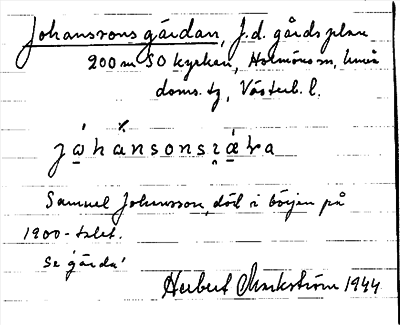 Johanssons gårdan, f.d. gårdsplan
200 m SO kyrkan, Holmöns sn, Umeå
doms. tg, Västerb. l.
Samuel Johansson, död i början på
1900-talet.
Se 'gårda'
Herbert Markström 1944